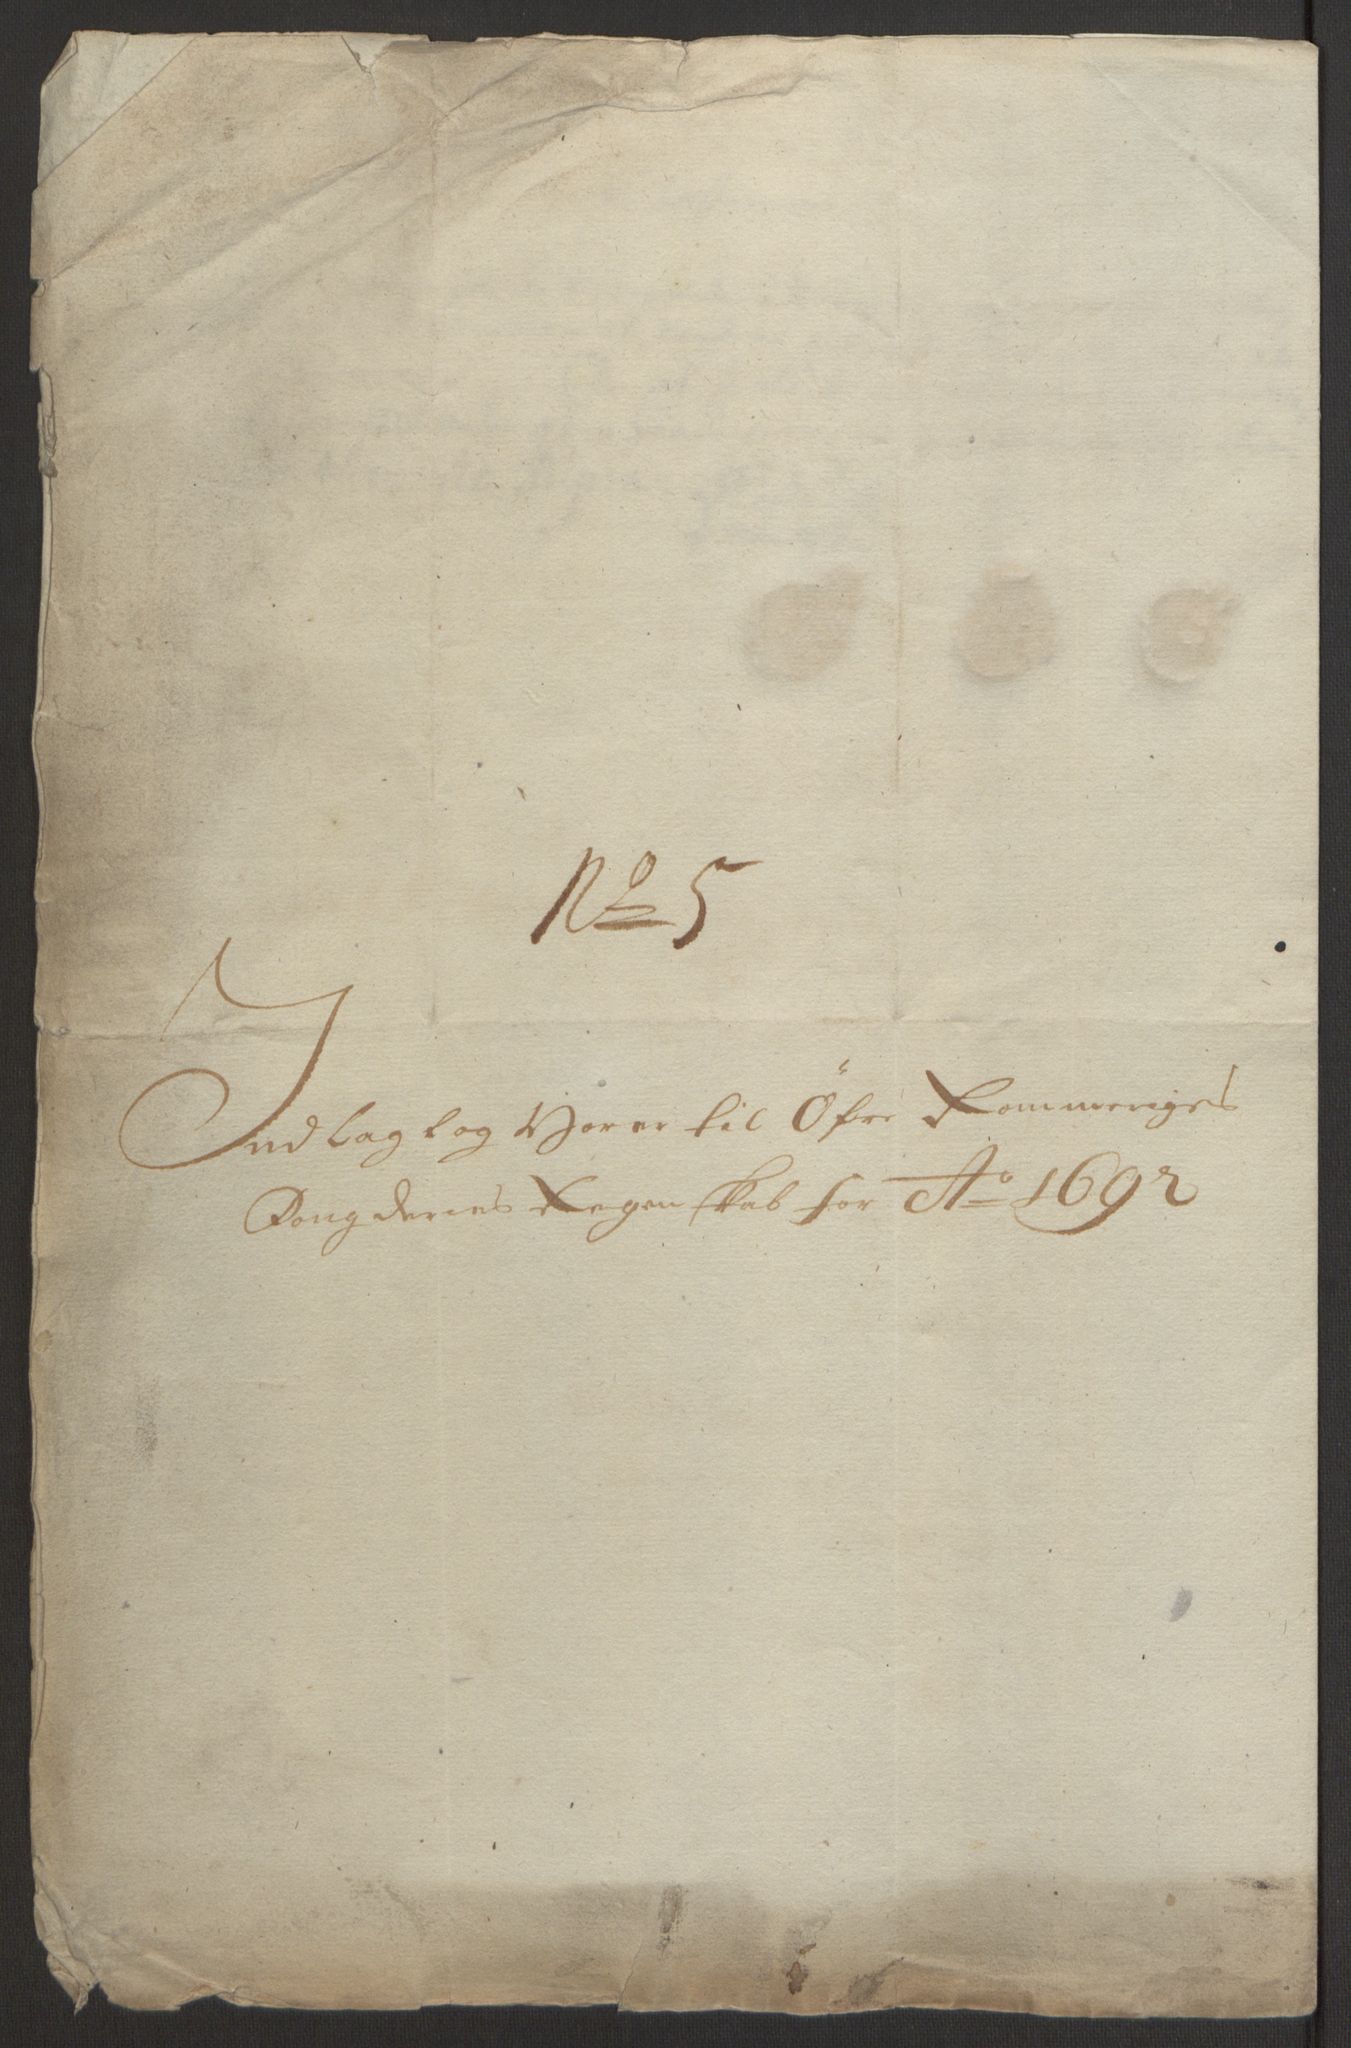 No 5
Indlag og hører til Øfre Rommeriges
Fougderies Regenskab for Ao 1692